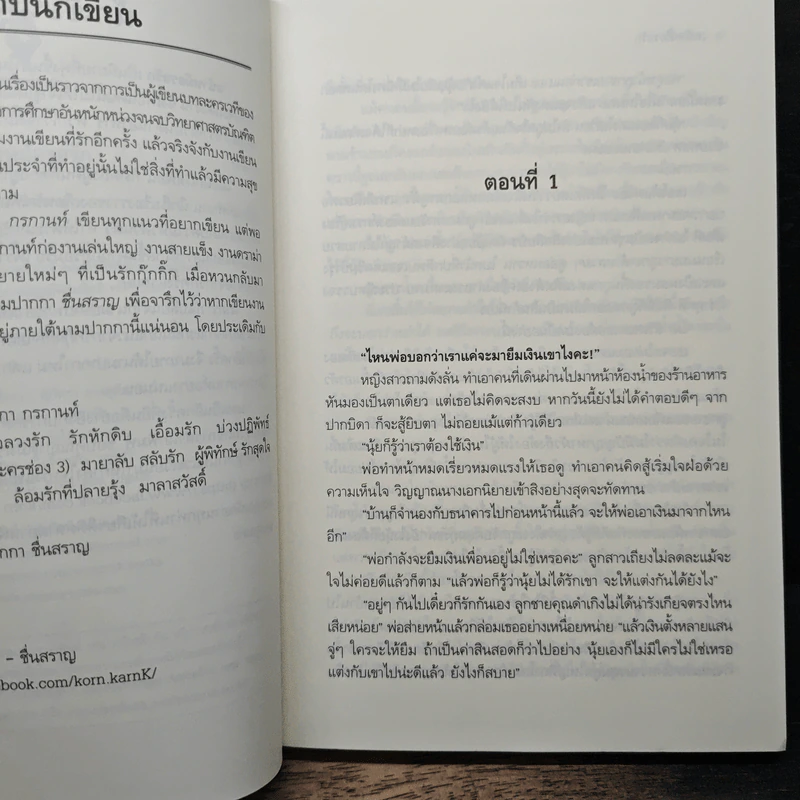 นักเขียน
เรื่องเป็นราวจากการเป็นผู้เขียนบทละครเวทีของ
การศึกษาอันหนักหน่วงจนจบวิทยาศาสตรบัณฑิต
งานเขียนที่รักอีกครั้ง แล้วจริงจังกับงานเขียน
ประจำที่ทำอยู่นั้นไม่ใช่สิ่งที่ทำแล้วมีความสุข
กรกานท์ เขียนทุกแนวที่อยากเขียน แต่พอ
กานท์ก่องานเล่นใหญ่ งานสายแข็ง งานดราม่า
ยายใหม่ๆ ที่เป็นรักกุ๊กกิ๊ก เมื่อหวนกลับมา
มปากกา ชื่นสราญ เพื่อจารึกไว้ว่าหากเขียนงาน
ยู่ภายใต้นามปากกานี้แน่นอน โดยประเดิมกับ
กา กรกานท์
ลวงรัก รักหักดิบ เอื้อมรัก บ่วงปฏิพัทธ์
ะครช่อง 3) มายาลับ สลับรัก ผู้พิทักษ์ รักสุดใจ
ล้อมรักที่ปลายรุ้ง มาลาสวัสดิ์
กกา ชื่นสราญ
– ชื่นสราญ
book.com/korn.karnK/
ตอนที่ 1
“ไหนพ่อบอกว่าเราแค่จะมายืมเงินเขาไงคะ!”
หญิงสาวถามดังลั่น ทำเอาคนที่เดินผ่านไปมาหน้าห้องน้ำของร้านอาหาร
หันมองเป็นตาเดียว แต่เธอไม่คิดจะสงบ หากวันนี้ยังไม่ได้คำตอบดีๆ จาก
ปากบิดา ก็จะสู้ยิบตา ไม่ถอยแม้แต่ก้าวเดียว
“นุ้ยก็รู้ว่าเราต้องใช้เงิน”
พ่อทำหน้าหมดเรี่ยวหมดแรงให้เธอดู ทำเอาคนคิดสู้เริ่มใจฝ่อด้วย
ความเห็นใจ วิญญาณนางเอกนิยายเข้าสิงอย่างสุดจะทัดทาน
“บ้านก็จำนองกับธนาคารไปก่อนหน้านี้แล้ว จะให้พ่อเอาเงินมาจากไหน
อีก”
“พ่อกำลังจะยืมเงินเพื่อนอยู่ไม่ใช่เหรอคะ” ลูกสาวเถียงไม่ลดละแม้จะ
ใจไม่ค่อยดีแล้วก็ตาม “แล้วพ่อก็รู้ว่านุ้ยไม่ได้รักเขา จะให้แต่งกันได้ยังไง”
“อยู่ๆ กันไปเดี๋ยวก็รักกันเอง ลูกชายคุณดำเกิงไม่ได้น่ารังเกียจตรงไหน
เสียหน่อย” พ่อส่ายหน้าแล้วกล่อมเธออย่างเหนื่อยหน่าย “แล้วเงินตั้งหลายแสน
จู่ๆ ใครจะให้ยืม ถ้าเป็นค่าสินสอดก็ว่าไปอย่าง นุ้ยเองก็ไม่มีใครไม่ใช่เหรอ
แต่งกับเขาไปน่ะดีแล้ว ยังไงก็สบาย”